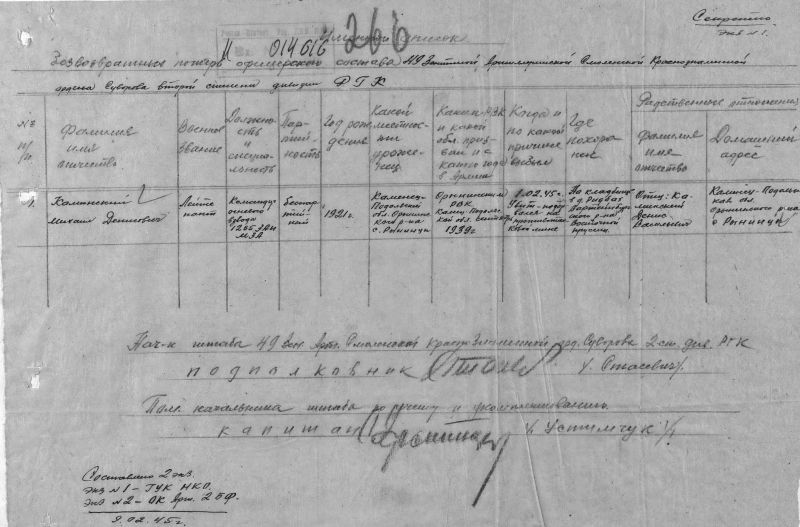 Секретно
Экз №1.
Именной список
014616
266
безвозвратных потерь офицерского состава 49 Зенитной Артиллерийской Смоленской Краснознаменной
ордена Суворова второй степени дивизии РГК
№№ п/п
Фамилия имя отчество
Военное звание
Должность и специальность
Партийность
Год рождения
Какой местности уроженец
Каким РВК и какой обл. призван и с какого года в Армии
Когда и по какой причине выбыл
Где похоронен
Родственные отношения
фамилия имя отчество
Домашний адрес
1.
Калинский Михаил Денисович
Лейтенант
Командир огневого взвода 1265 ЗАП МЗА
беспартийный
1921г.
Каменец-Подольской обл. Орынинского р-на с. Рынинцы
Орынинским РВК Камец-Подольск обл. 1939г
8.02.45г. Убит-подорвался на мине
На кладбище в д. Восточной Пруссии
Отец: Калинский Денис
Каменец-Подольская обл. Орынинского р-на с Рынинцы
Нач-к штаба 49 Зен. Арт. Смоленской Краснознаменной орд. Суворова 2 ст. див. РГК
подполковник
/Стасевич/.
Пом. начальника штаба по учету и укомплектованию
капитан
/Устимчук/
Составлено 2 экз.
Экз №1 – ГУК НКО.
Экз №2 – ОК Арт. 2 БФ.
9.02.45г.